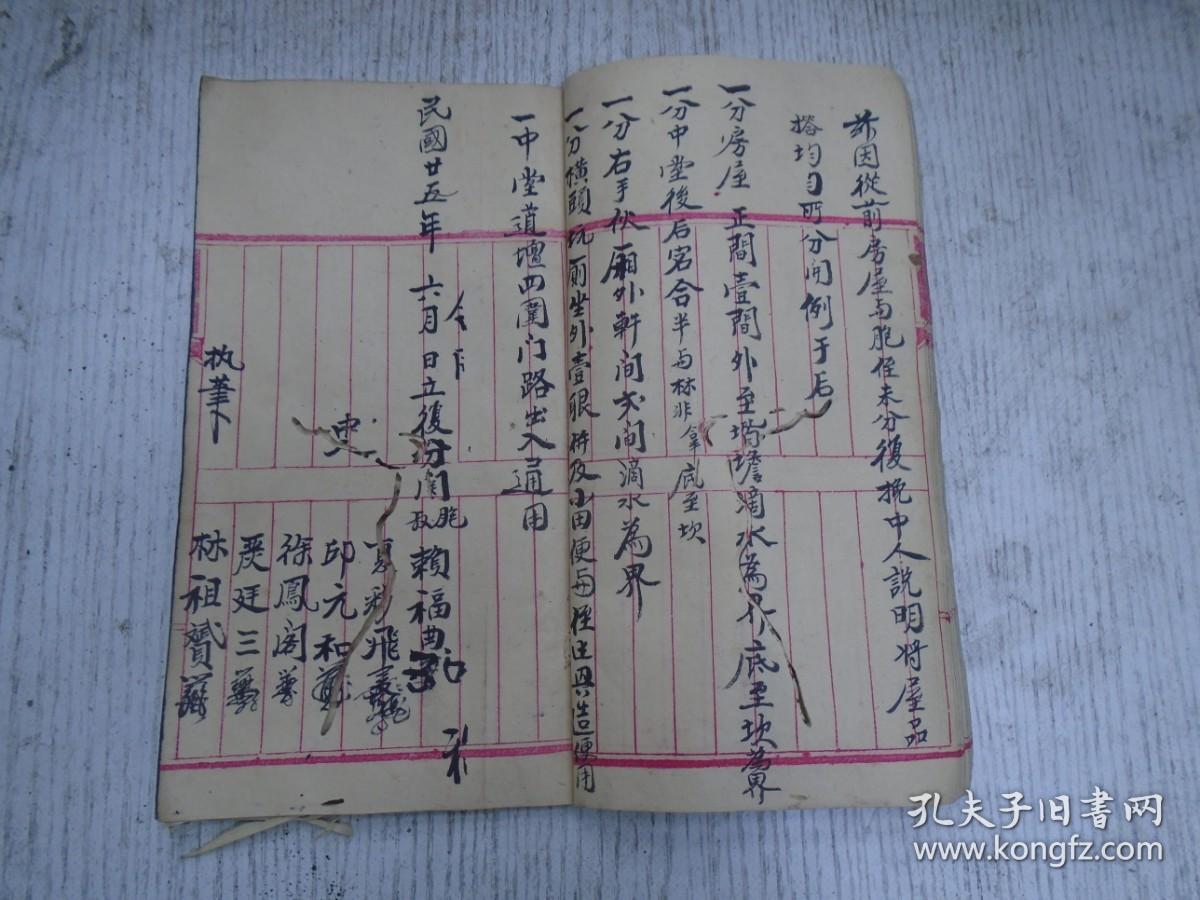 茲因從前房屋与胞侄未分復挽中人説明将屋品
搭均自所分開例于后
一分房屋正間壹間外至堦簷滴水為界底至坎為界
一分中堂後后宻合半与林非拿底至坎
一分右手伙廂外軒间弍间滴水為界
一分横頭坑厕坐外壹眼併及小田便与侄往興造便用
一中堂道壇四圍门路出入通用
民國廿五年六月 日立復分開胞叔賴福典
中
夏彩飛
邱元和
徐鳳阁
嚴廷三
执筆 林祖贊
孔夫子旧书网
www.kongfz.com